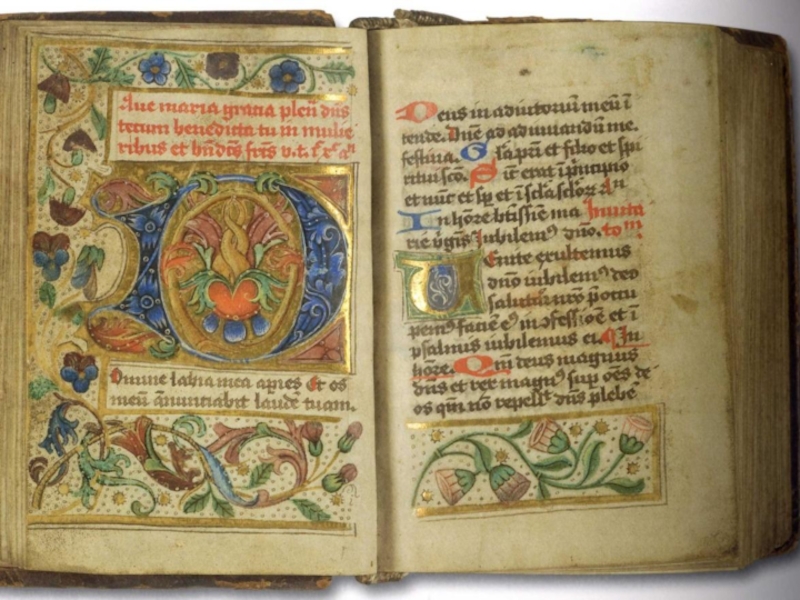 Aue maria gratia plen̄ dn̄s
tecum benedicta tu in mulie
ribus et bn̄dc̄s
Domine labia mea apies Et os
meū annunciabit laudē tuam.
Deus in adiutoriū meū ī
tende. Dn̄e ad adiuuandū me.
festina. Gl̄a patri et filio et spi
ritui sc̄o. Sic̄ erat ī pricipio
et nūc et sp̄ et ī sc̄la sclor̄
In hōre btissīe ma Inuita
rie v̄gīs Iubilemꝰ dn̄o. to
Uenite exultemus
dn̄o iubilemꝰ deo
salutari nr̄o p̄occu
pemꝰ faciē eꝰ in ꝯfessiōe et ī
psalmis iubilemus ei. In
hōre. Qm̄ deus magnus
dn̄s et rex magnꝰ sup oēs de
os qm̄ nō repell̄ dn̄s plebē